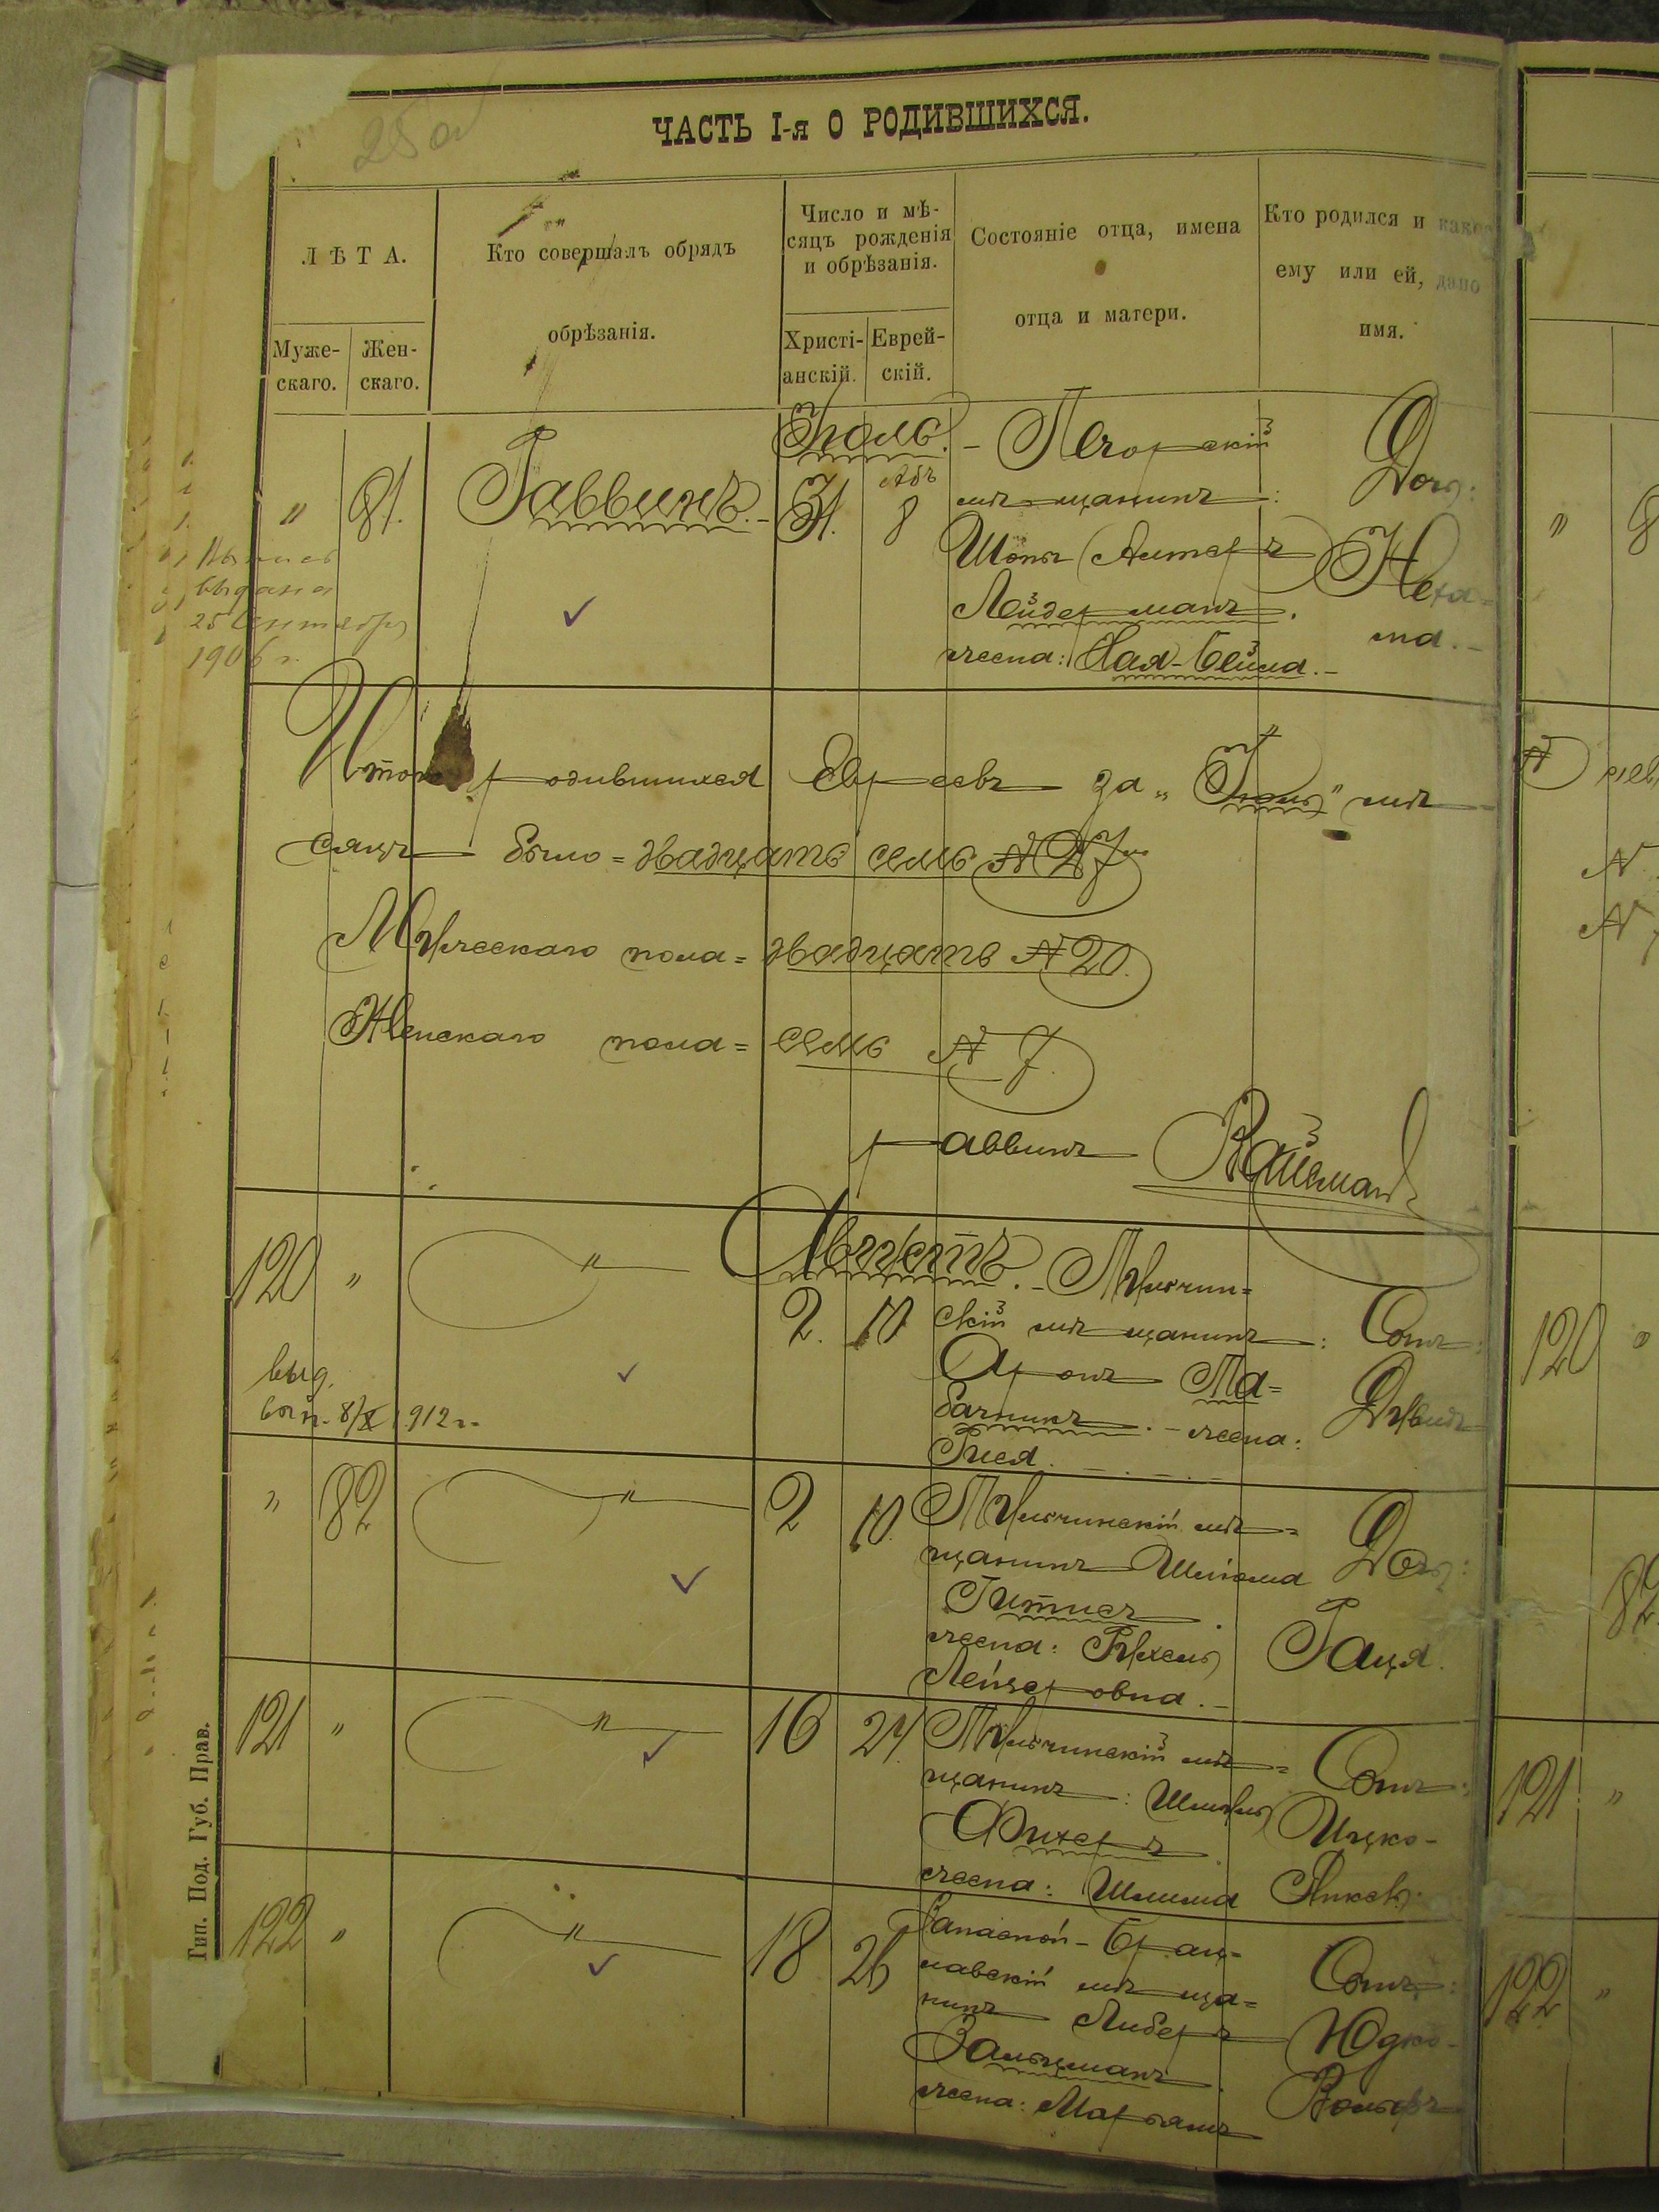 25 а
ЧАСТЬ I-я О РОДИВШИХСЯ.
ЛѢТА.
Муже-
скаго.
Жен-
скаго.
Кто совершалъ обрядъ
обрѣзанія.
Число и мѣ-
сяцъ рожденія
и обрѣзанія.
Христі-
анскій.
Еврей-
скій.
Состояніе отца, имена
отца и матери.
Кто родился и како
ему или ей, дано
имя.
Іюль.
" 81. Раввинъ. 31. Абъ 8
Печорскій
мѣщанинъ:
Шопъ (Алтеръ)
Лейдерманъ.
жена: Хая-Бейла.
Дочь:
Неха-
ма.
выдана
25 Сентября
1906 г.
Итого родившихся Евреевъ за „Іюль" мѣ-
сяцъ было = двадцать семь № 27
Мужескаго пола = двадцать № 20.
Женскаго пола = семь № 7.
раввинъ Вайсманъ
Августъ.
120 " " 2. 10
Тульчин=
скій мѣщанинъ:
Аронъ Та=
бачникъ. жена:
Гися.
Сынъ:
Дувидъ
выд.
вып. 8/X 1912 г.
" 82 " 2 10.
Тульчинскій мѣ=
щанинъ Шлёма
Гитисъ.
жена: Рухель
Лейзеровна.
Дочь:
Гаця.
121 " " 16 24.
Тульчинскій мѣ=
щанинъ: Шмуль
Фихеръ.
жена: Шлима
Сынъ:
Ицко-
Янкель.
122 " " 18 26
Запасной-Брац=
лавскій мѣща=
нинъ Либеръ
Зальцманъ.
жена: Марьямъ
Сынъ:
Юдко-
Вольфъ
Тип. Под. Губ. Прав.
" 8
120 "
82
121 "
122 "